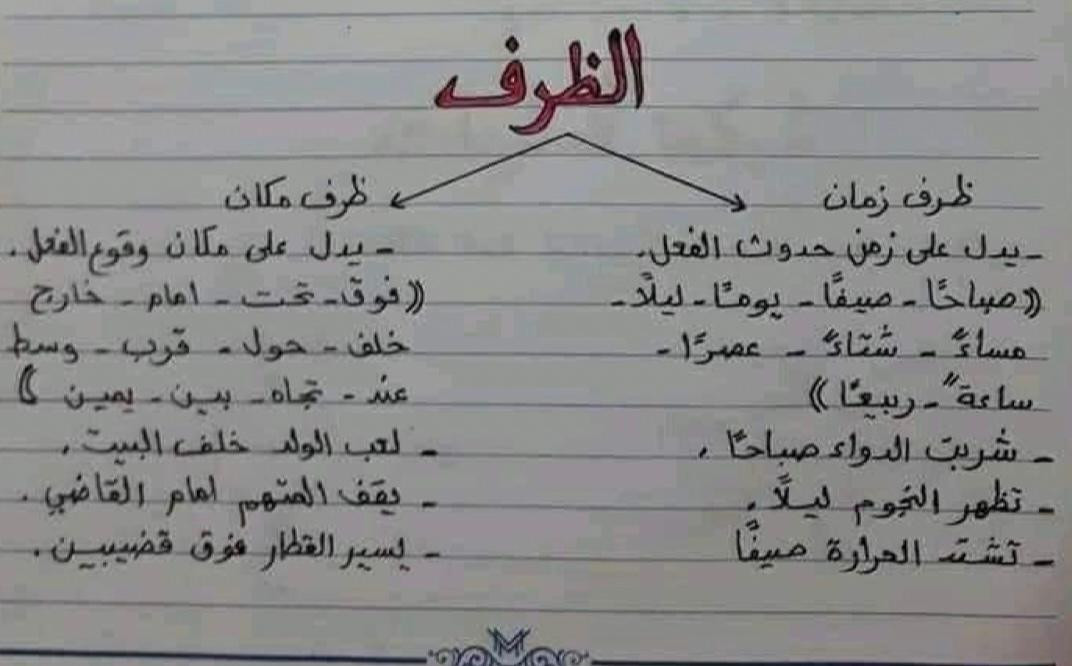 الظرف
ظرف زمان
- يدل على زمن حدوث الفعل.
((صباحًا - صيفًا - يومًا - ليلًا -
مساءً - شتاءً - عصرًا -
ساعةً - ربيعًا))
- شربت الدواء صباحًا .
- تظهر النجوم ليلًا .
- تشتد الحرارة صيفًا
ظرف مكان
- يدل على مكان وقوع الفعل .
((فوق - تحت - امام - خارج
خلف - حول - قرب - وسط
عند - تجاه - بين - يمين ))
- لعب الولد خلف البيت .
- يقف المتهم امام القاضي .
- يسير القطار فوق قضيبين .